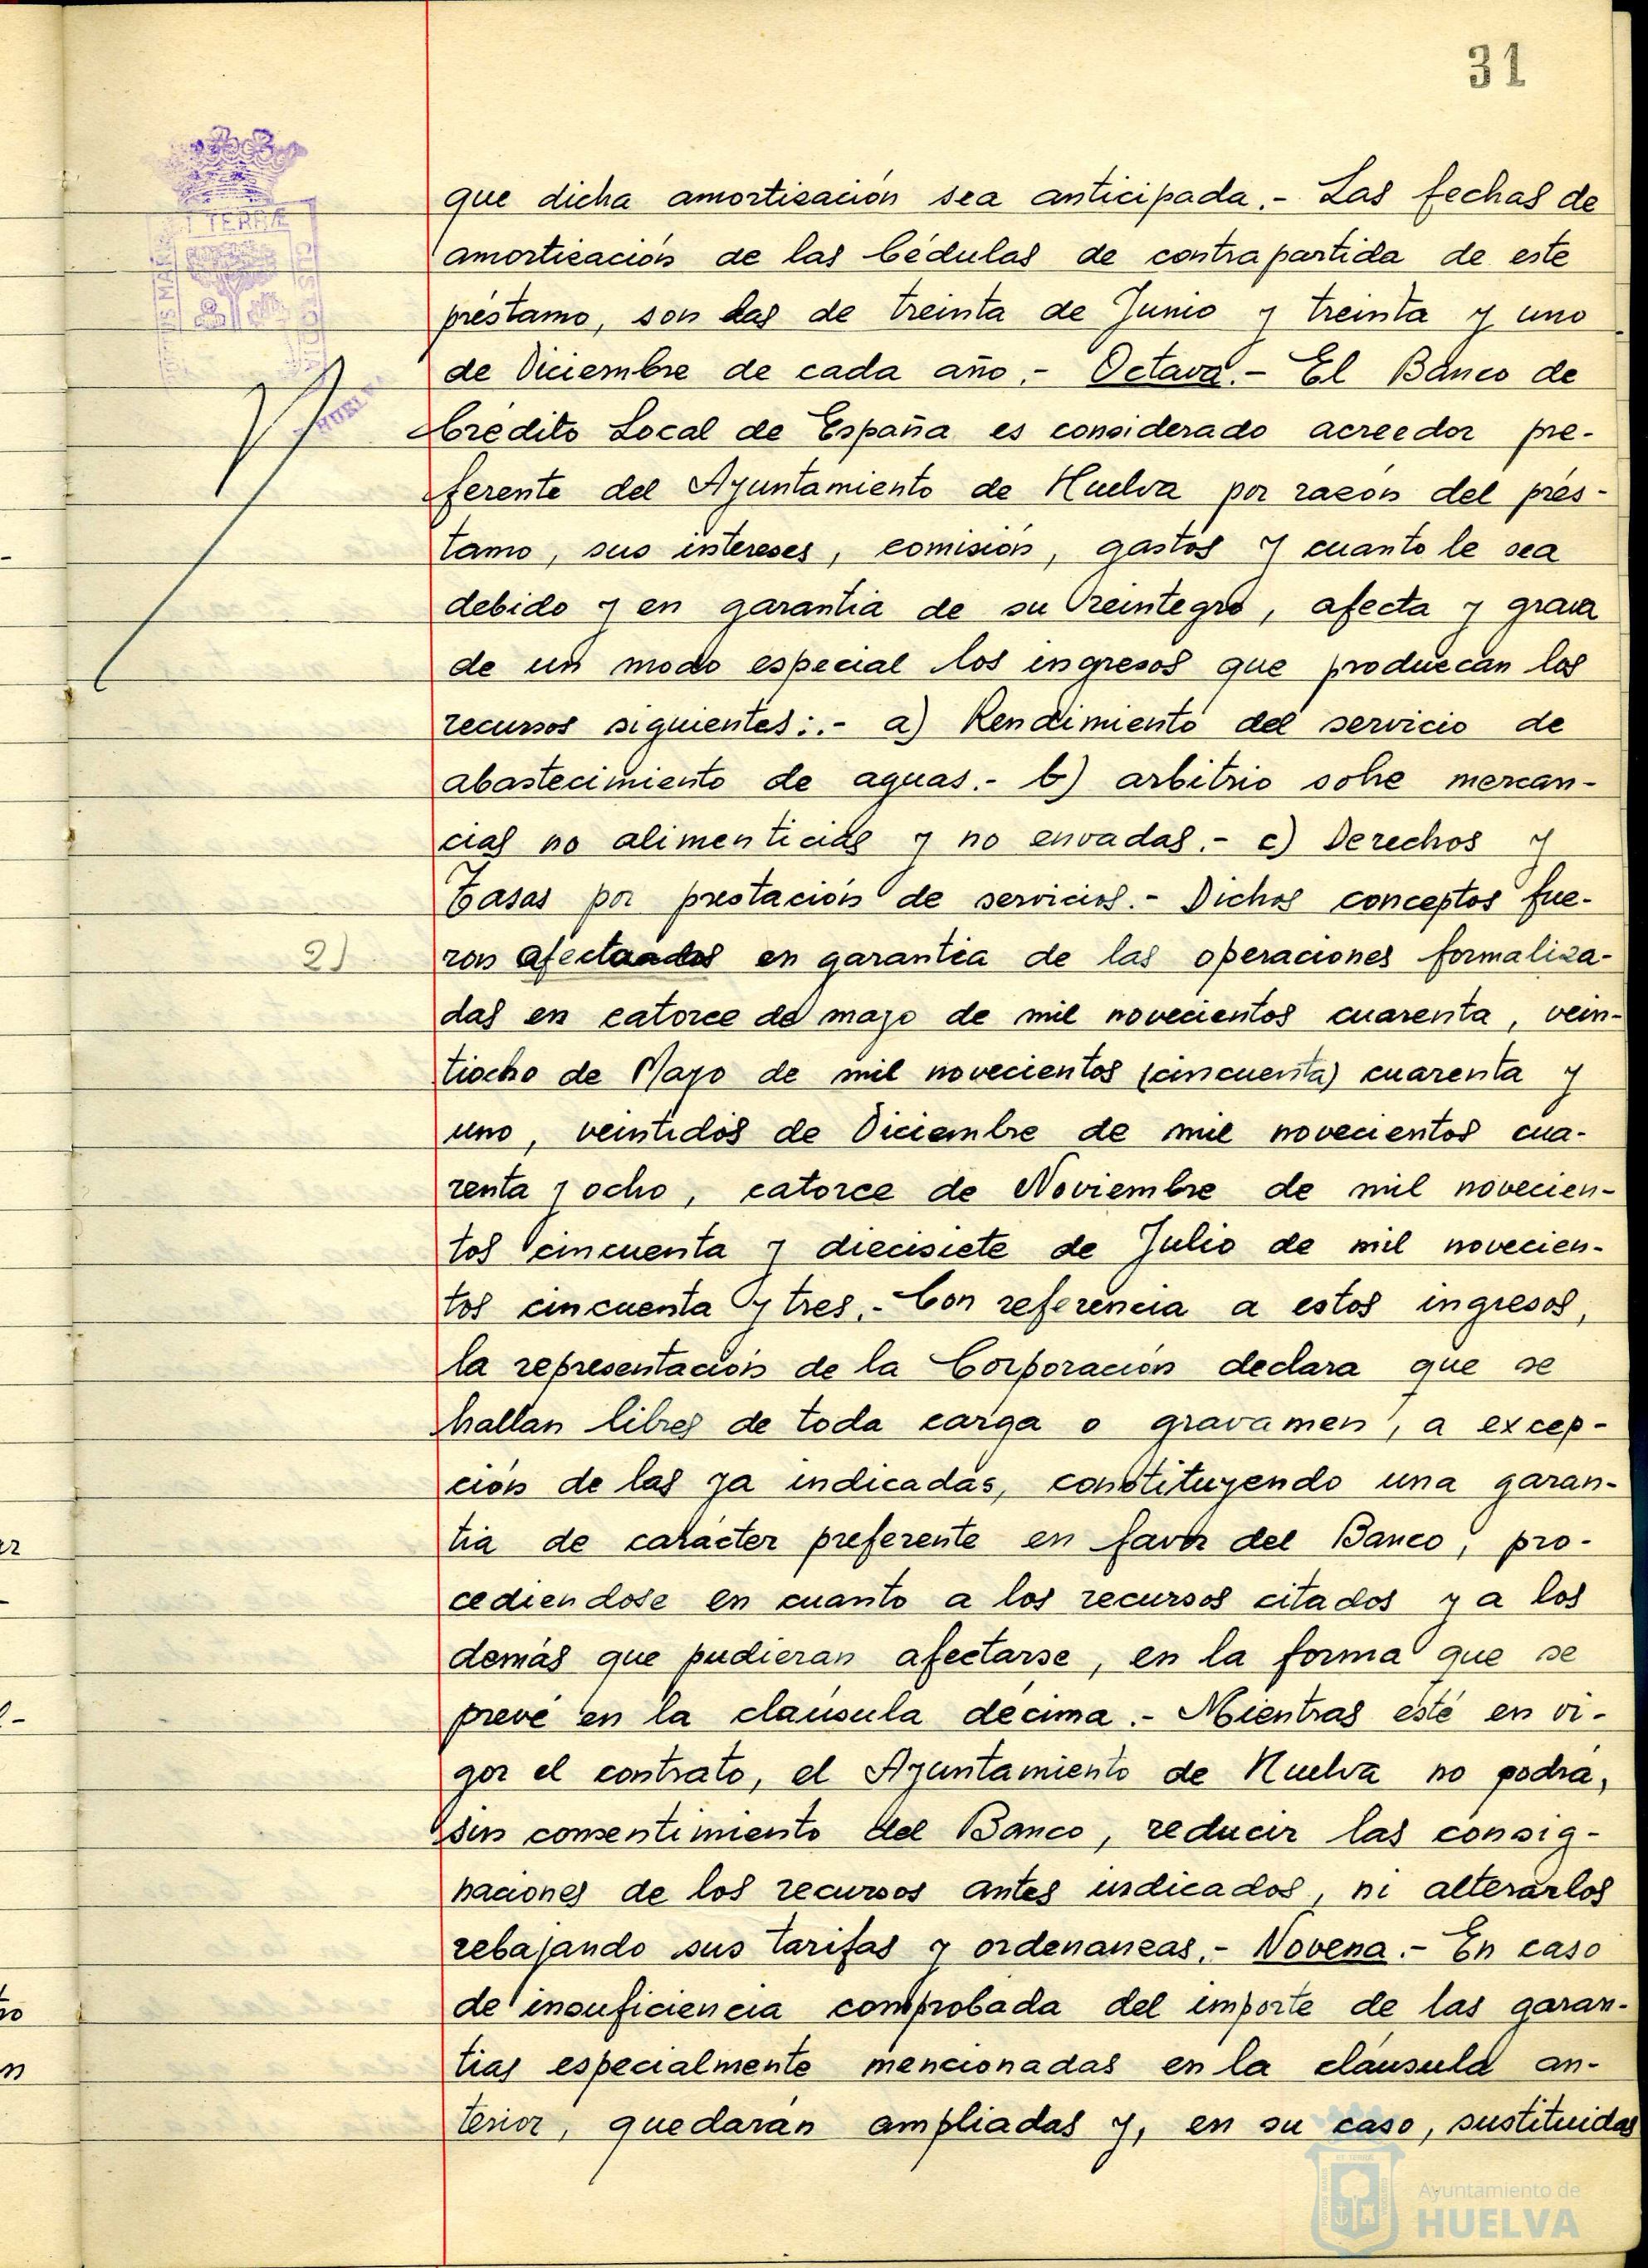 31
que dicha amortización sea anticipada.- Las fechas de
amortización de las Cédulas de contrapartida de este
préstamo, son las de treinta de Junio y treinta y uno
de Diciembre de cada año.- Octava.- El Banco de
Crédito Local de España es considerado acreedor pre-
ferente del Ayuntamiento de Huelva por razón del prés-
tamo, sus intereses, comisión, gastos y cuanto le sea
debido y en garantia de su reintegro, afecta y grava
de un modo especial los ingresos que produzcan los
recursos siguientes:.- a) Rendimiento del servicio de
abastecimiento de aguas.- b) arbitrio sobre mercan-
cias no alimenticias y no envadas.- c) Derechos y
Tasas por prestación de servicios.- Dichos conceptos fue-
2)
ron afectados en garantia de las operaciones formaliza-
das en catorce de mayo de mil novecientos cuarenta, vein-
tiocho de Mayo de mil novecientos (cincuenta) cuarenta y
uno, veintidós de Diciembre de mil novecientos cua-
renta y ocho, catorce de Noviembre de mil novecien-
tos cincuenta y diecisiete de Julio de mil novecien-
tos cincuenta y tres.- Con referencia a estos ingresos,
la representación de la Corporación declara que se
hallan libres de toda carga o gravamen, a excep-
ción de las ya indicadas, constituyendo una garan-
tia de carácter preferente en favor del Banco, pro-
cediendose en cuanto a los recursos citados y a los
demás que pudieran afectarse, en la forma que se
prevé en la claúsula décima.- Mientras esté en vi-
gor el contrato, el Ayuntamiento de Huelva no podrá,
sin consentimiento del Banco, reducir las consig-
naciones de los recursos antes indicados, ni alterarlos
rebajando sus tarifas y ordenanzas.- Novena.- En caso
de insuficiencia comprobada del importe de las garan-
tias especialmente mencionadas en la claúsula an-
terior, quedarán ampliadas y, en su caso, sustituidas
TERRÆ
CUSTODIA
HUELVA
Ayuntamiento de
HUELVA